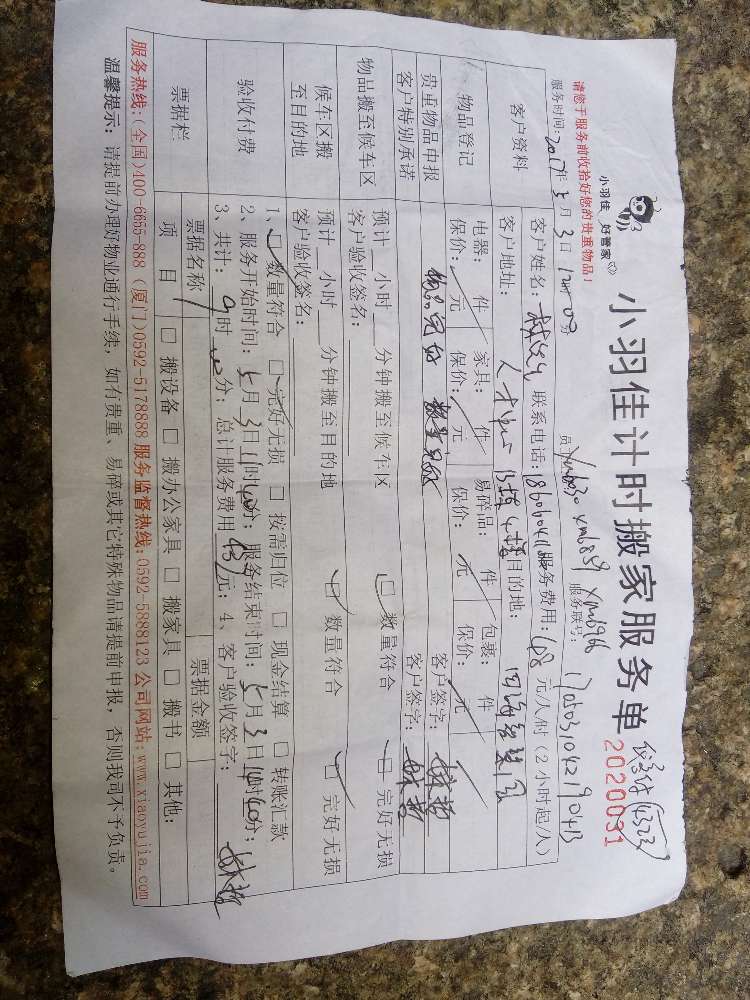 小羽佳 好管家
小羽佳计时搬家服务单
2020031
请您于服务前收拾好您的贵重物品！
服务时间：2017年5月3日
服务联号：
客户资料
客户姓名： 联系电话： 服务费用：68元/人/时（2小时起/人）
客户地址： 目的地：
物品登记
电器： 件 家具： 件 易碎品： 件 包裹： 件
保价： 元 保价： 元 保价： 元 保价： 元
贵重物品申报 物品完好 数量 客户签字：
客户特别承诺 客户签字：
物品搬至候车区
预计 小时 分钟搬至候车区
客户验收签名： □ 数量符合 □ 完好无损
候车区搬至目的地
预计 小时 分钟搬至目的地
客户验收签名： □ 数量符合 □ 完好无损
验收付费
1、□ 数量符合 □ 完好无损 □ 按需归位 □ 现金结算 □ 转账汇款
2、服务开始时间：5月3日 时 分；服务结束时间：5月3日 时 分；
3、共计：9时 分；总计服务费用 元；4、客户验收签字：
票据栏
票据名称 票据金额
项目 □ 搬设备 □ 搬办公家具 □ 搬家具 □ 搬书 □ 其他：
服务热线：(全国)400-6655-888 (厦门)0592-5178888 服务监督热线：0592-5888123 公司网站：www.xiaoyujia.com
温馨提示：请提前办理好物业通行手续，如有贵重、易碎或其它特殊物品请提前申报，否则我司不予负责。